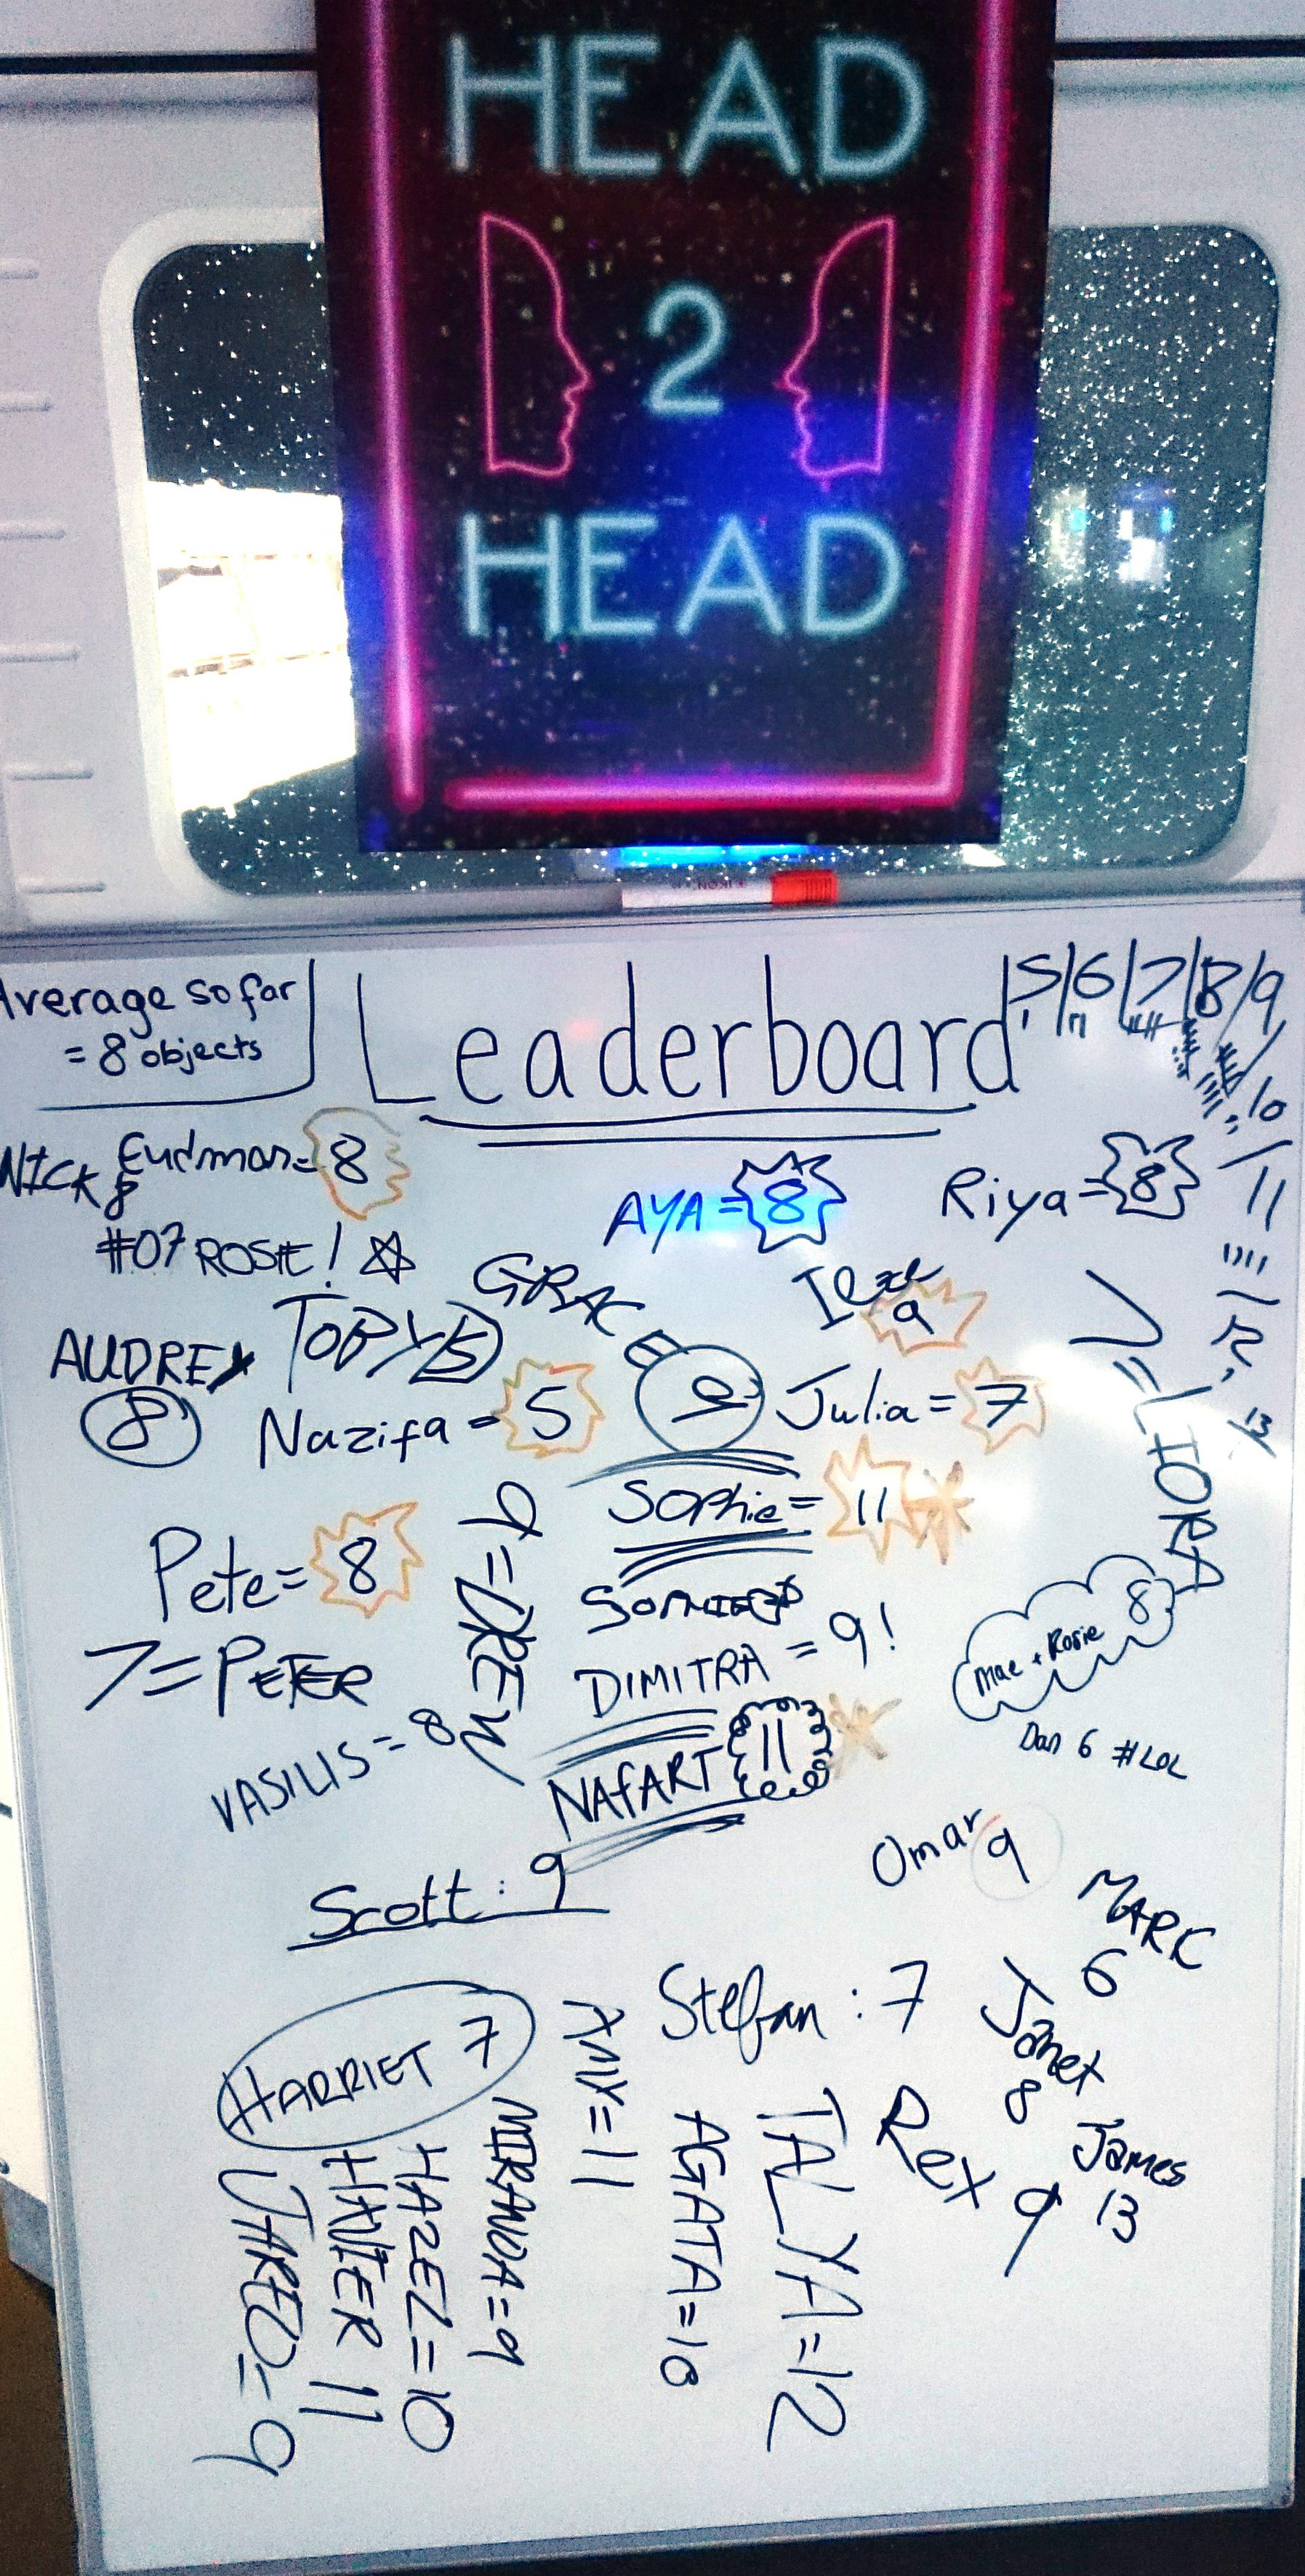 HEAD
2
HEAD
Average so far
= 8 objects
Leaderboard
5/6/7/8/9
10
11
12
13
NICK
8
Eudmon = 8
#07 ROSIE!
AYA = 8
Riya = 8
GRACE
9
Ilze
9
AUDREY
8
TOBY 15
Nazifa = 5
Julia = 7
7 = LIORA
Sophie = 11
Pete = 8
9 = DREW
7 = PETER
DIMITRA = 9!
Mae + Rosie 8
VASILIS = 8
NAFART 11
Dan 6 #LOL
Scott: 9
Omar 9
MARK
6
Stefan: 7
Janet
8
HARRIET 7
James
13
Rex 9
TALYA = 12
AGATA = 10
= 11
MIRANDA = 9
HAZEL = 10
11
JARED = 9